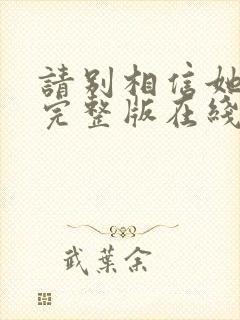 請別相信她
完整版在綫
武葉余